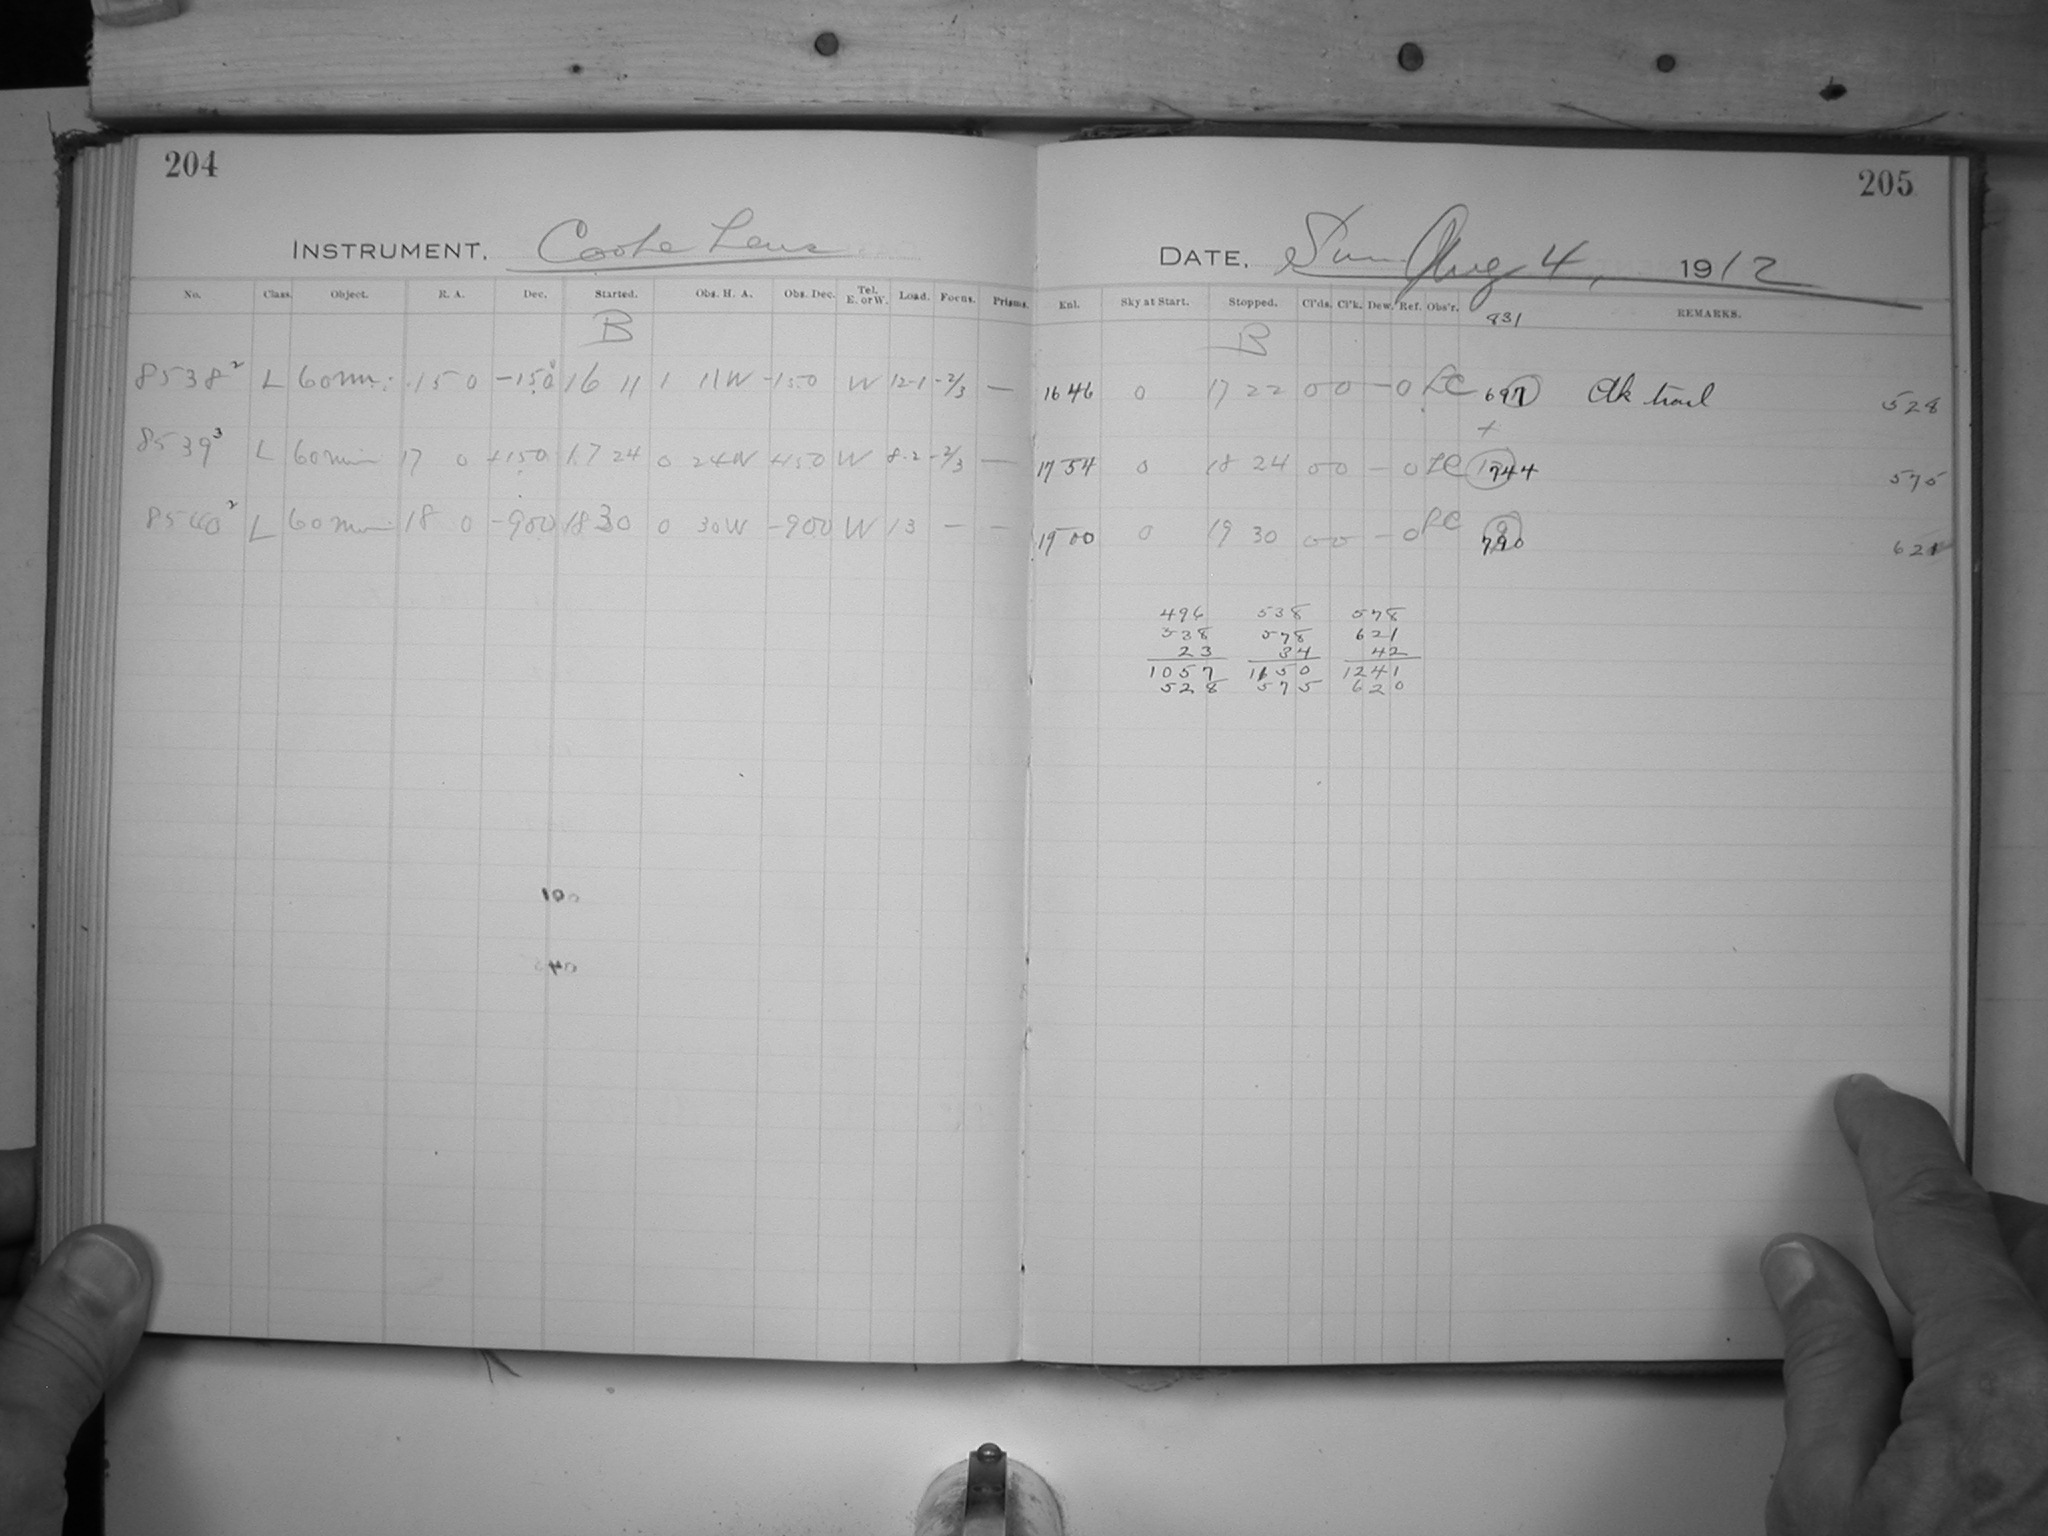 204
205
INSTRUMENT. Cooke Lens
DATE. Sun Aug 4, 1912
No. Class. Object. R. A. Dec. Started. Obs. H. A. Obs. Dec. Tel. E. or W. Load. Focus. Prisms.
Enl. Sky at Start. Stopped. Cl'ds. Cl'k. Dew. Ref. Obs'r. REMARKS.
831
B
B
8538² L 60 min. 15 0 -15.0 16 11 1 11W -15.0 W 12-1 -2/3 —
16 46 0 17 22 0 0 - 0 LC 697 Clk trail 528
+
8539³ L 60 min 17 0 +15.0 17 24 0 24W +15.0 W 8.2 -2/3 —
17 54 0 18 24 0 0 - 0 LC 1744 575
8540² L 60 min 18 0 -900 18 30 0 30W -900 W 13 — —
19 00 0 19 30 0 0 - 0 LC 790 621
496 538 578
538 578 621
23 34 42
1057 1150 1241
528 575 620